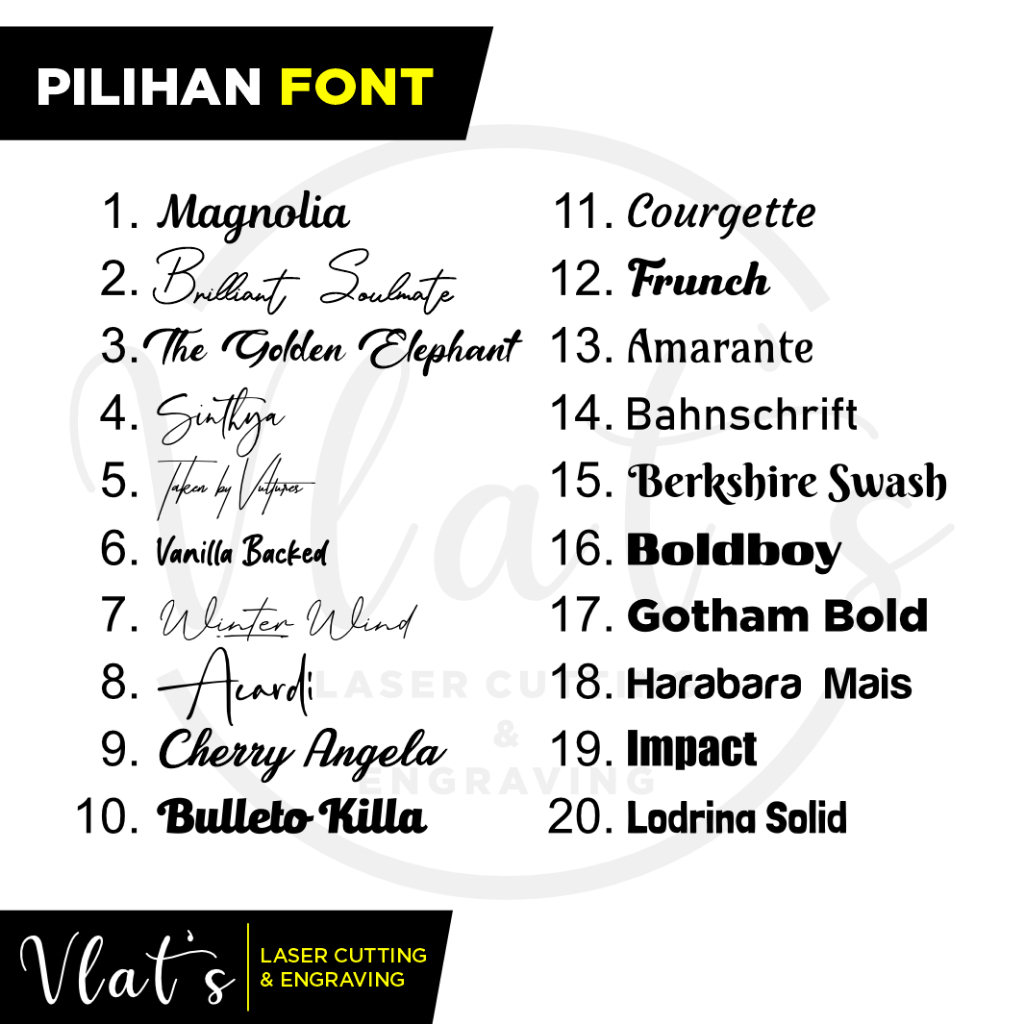 PILIHAN FONT
1. Magnolia
2. Brilliant Soulmate
3. The Golden Elephant
4. Sinthya
5. Taken by Vultures
6. Vanilla Backed
7. Winter Wind
8. Acardi
9. Cherry Angela
10. Bulleto Killa
11. Courgette
12. Frunch
13. Amarante
14. Bahnschrift
15. Berkshire Swash
16. Boldboy
17. Gotham Bold
18. Harabara Mais
19. Impact
20. Lodrina Solid
Vlat's
LASER CUTTING
& ENGRAVING
Vlat's
LASER CUTTING
&
ENGRAVING